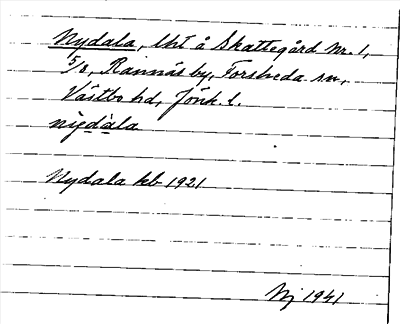 Nydala, lht å Skattegård Nr. 1,
5/8, Rannäs by, Forsheda sn,
Västbo hd, Jönk. l.
nỳdàla
Nydala kb 1921
Nj 1941